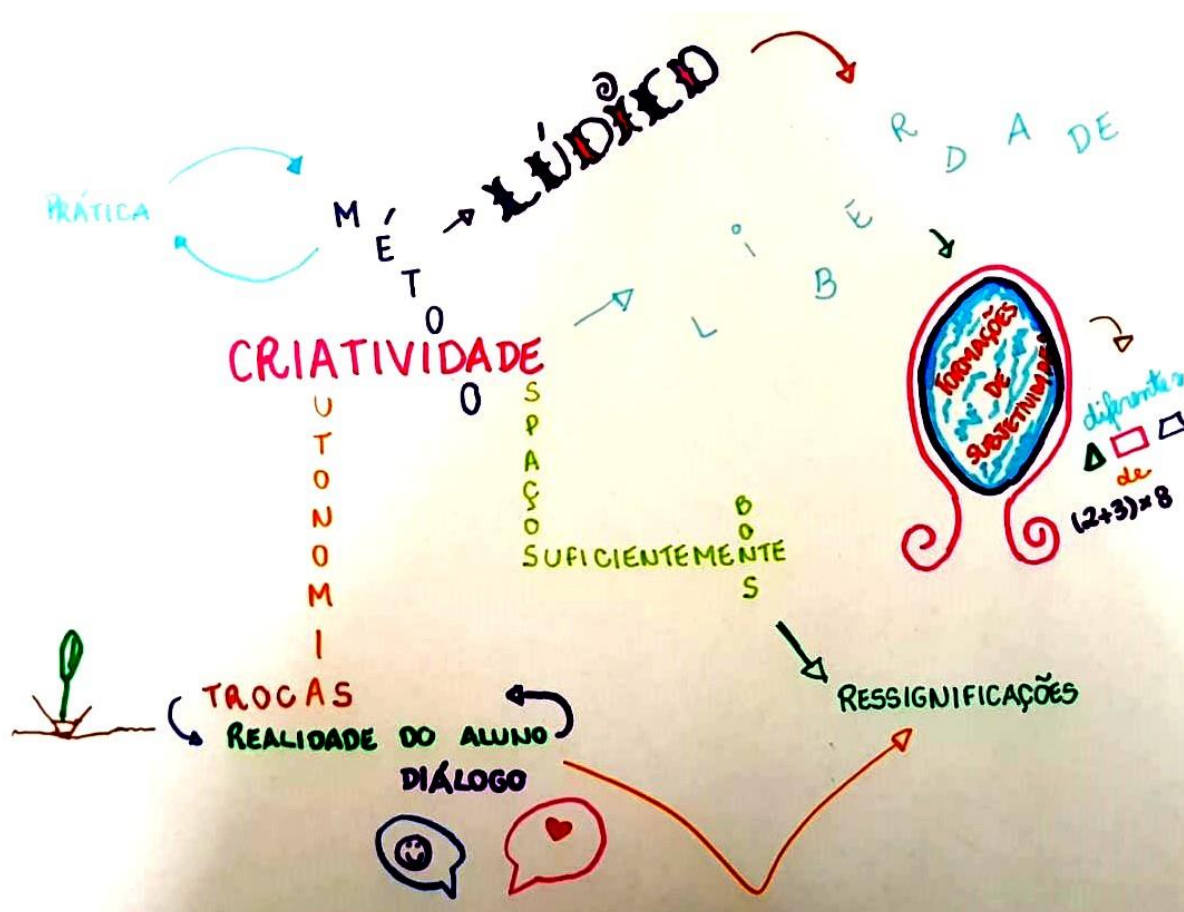 LÚDICO
PRÁTICA
MÉTODO
LiBERDADE
CRIATIVIDADE
AUTONOMIA
ESPAÇOS
SUFICIENTEMENTE
BONS
FORMAÇÕES
DE
SUBJETIVIDADE
diferentes
de
(2+3)×8
TROCAS
REALIDADE DO ALUNO
DIÁLOGO
RESSIGNIFICAÇÕES